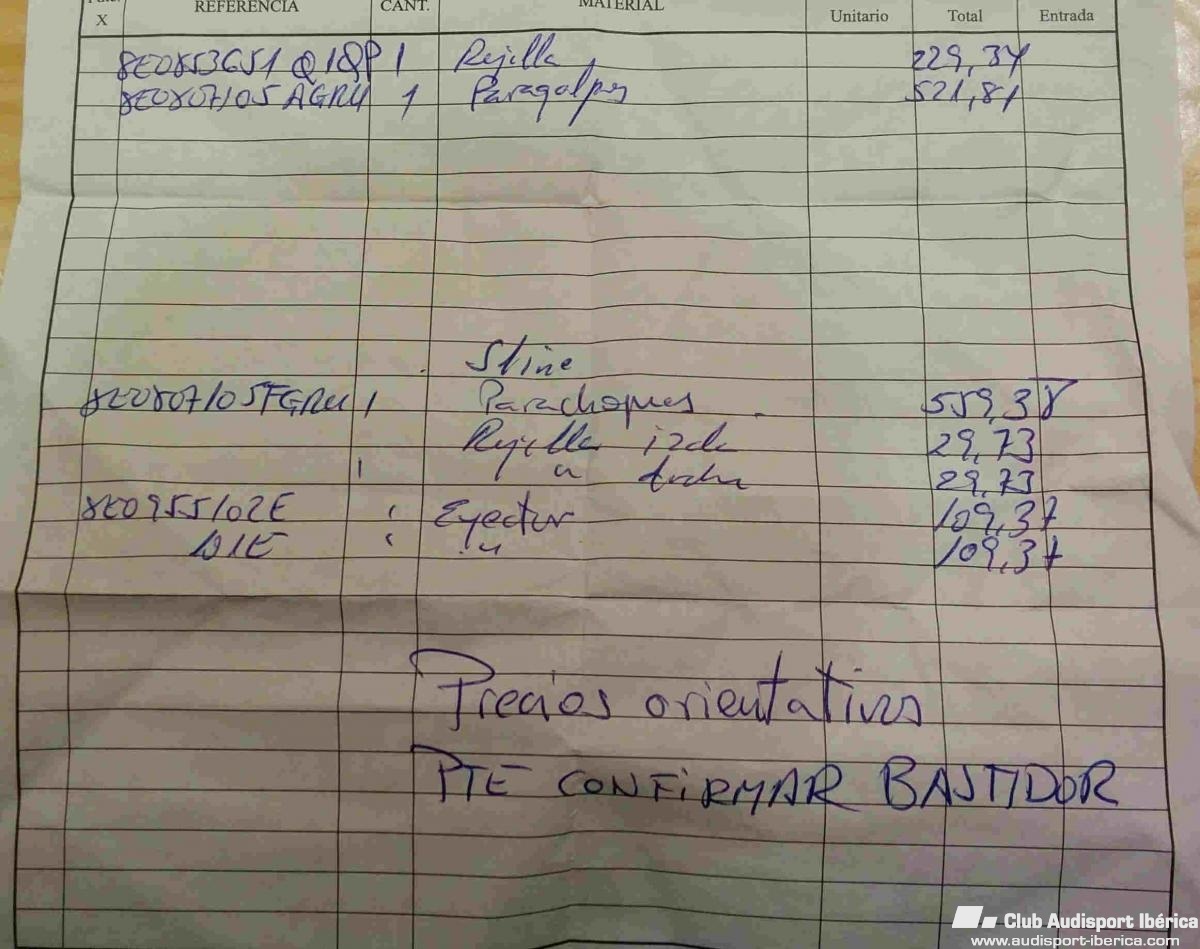 X REFERENCIA CANT. MATERIAL Unitario Total Entrada
8E0853651 Q1QP 1 Rejilla 229,34
8E0807105 AGRU 1 Paragolpes 521,81
Sline
8E0807105FGRU 1 Parachoques 559,38
Rejilla izda 29,73
1 " drcha 29,73
8E0955102E Eyector 109,37
101E " 109,37
Precios orientativos
PTE CONFIRMAR BASTIDOR
Club Audisport Ibérica
www.audisport-iberica.com